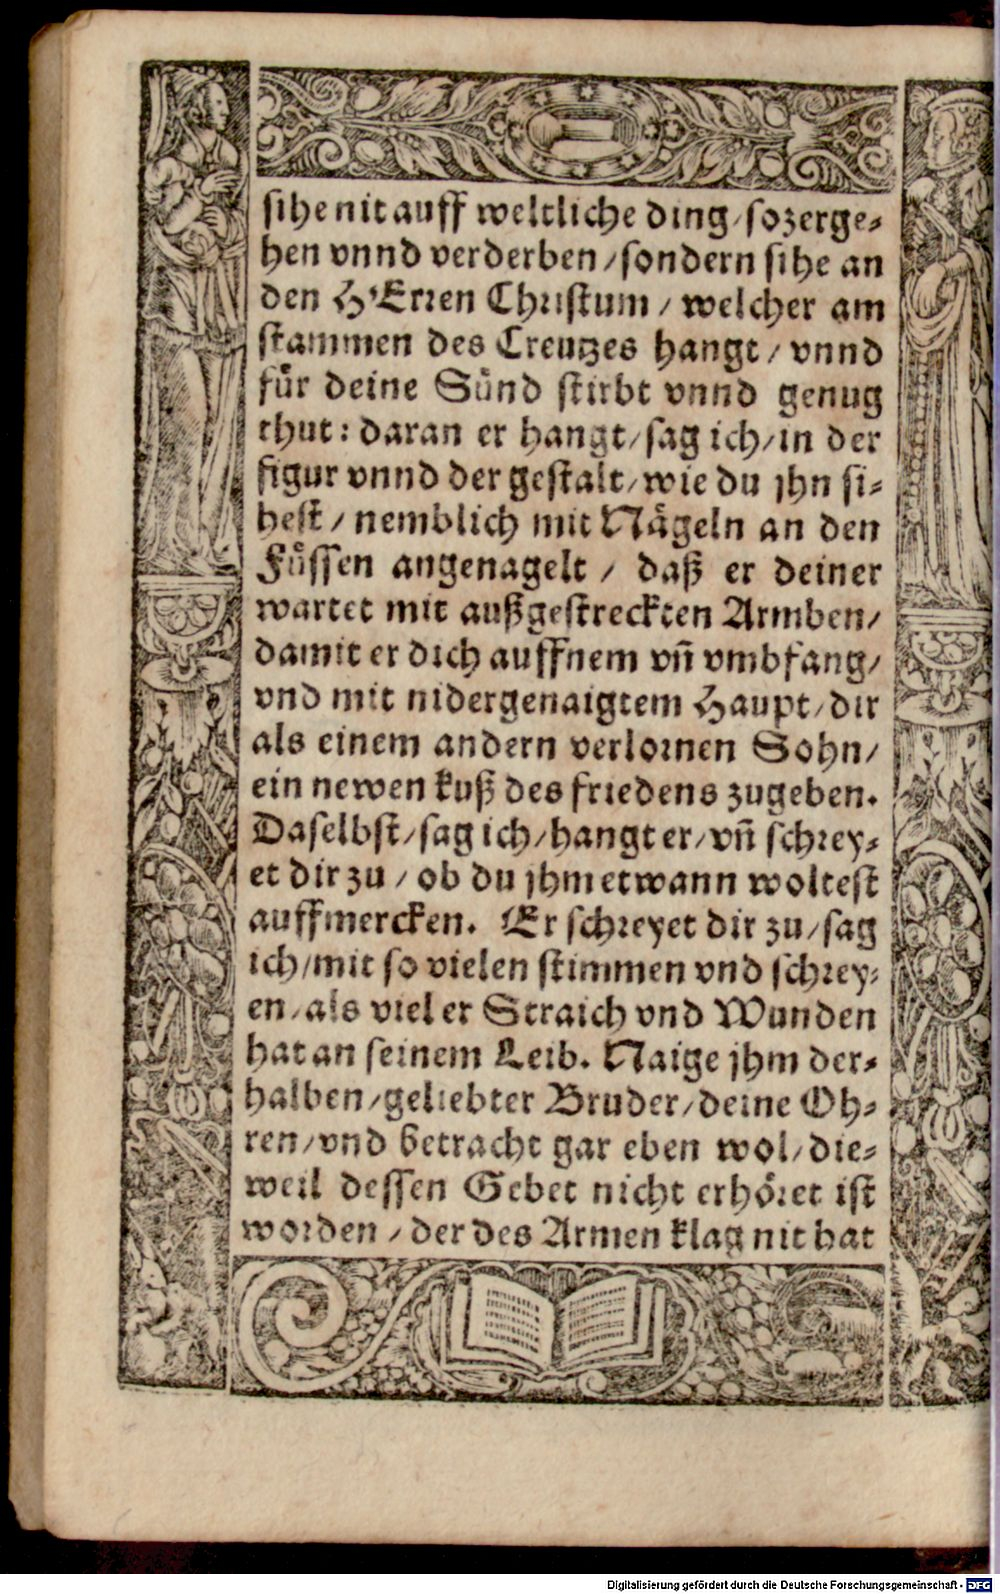 sihe nit auff weltliche ding/ so zerge-
hen vnnd verderben/ sondern sihe an
den H'Erren Christum/ welcher am
stammen des Creutzes hangt/ vnnd
für deine Sünd stirbt vnnd genug
thut: daran er hangt/ sag ich/ in der
figur vnnd der gestalt/ wie du jhn si-
hest/ nemblich mit Nägeln an den
Füssen angenagelt/ daß er deiner
wartet mit außgestreckten Armben/
damit er dich auffnem vñ vmbfang/
vnd mit nidergenaigtem Haupt/ dir
als einem andern verlornen Sohn/
ein newen kuß des friedens zugeben.
Daselbst/ sag ich/ hangt er/ vñ schrey-
et dir zu/ ob du jhm etwann woltest
auffmercken. Er schreyet dir zu/ sag
ich/ mit so vielen stimmen vnd schrey-
en/ als viel er Straich vnd Wunden
hat an seinem Leib. Naige jhm der-
halben/ geliebter Bruder/ deine Oh-
ren/ vnd betracht gar eben wol/ die-
weil dessen Gebet nicht erhöret ist
worden/ der des Armen klag nit hat
Digitalisierung gefördert durch die Deutsche Forschungsgemeinschaft - DFG